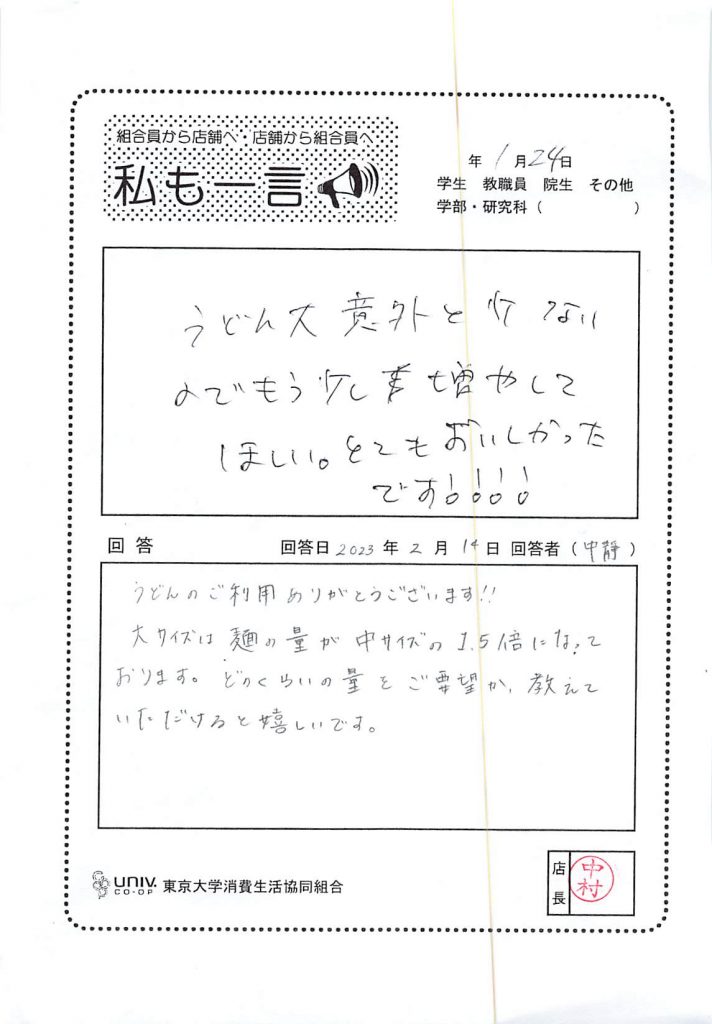 組合員から店舗へ・店舗から組合員へ
私も一言
年 1月24日
学生 教職員 院生 その他
学部・研究科( )
うどん大 意外と少ない
のでもう少し増やして
ほしい。とてもおいしかった
です!!!!
回答 回答日 2023年2月14日 回答者(中静)
うどんのご利用ありがとうございます!!
大サイズは麺の量が中サイズの1.5倍になって
おります。どのくらいの量をご要望か、教えて
いただけると嬉しいです。
UNIV. CO-OP 東京大学消費生活協同組合
店長 中村